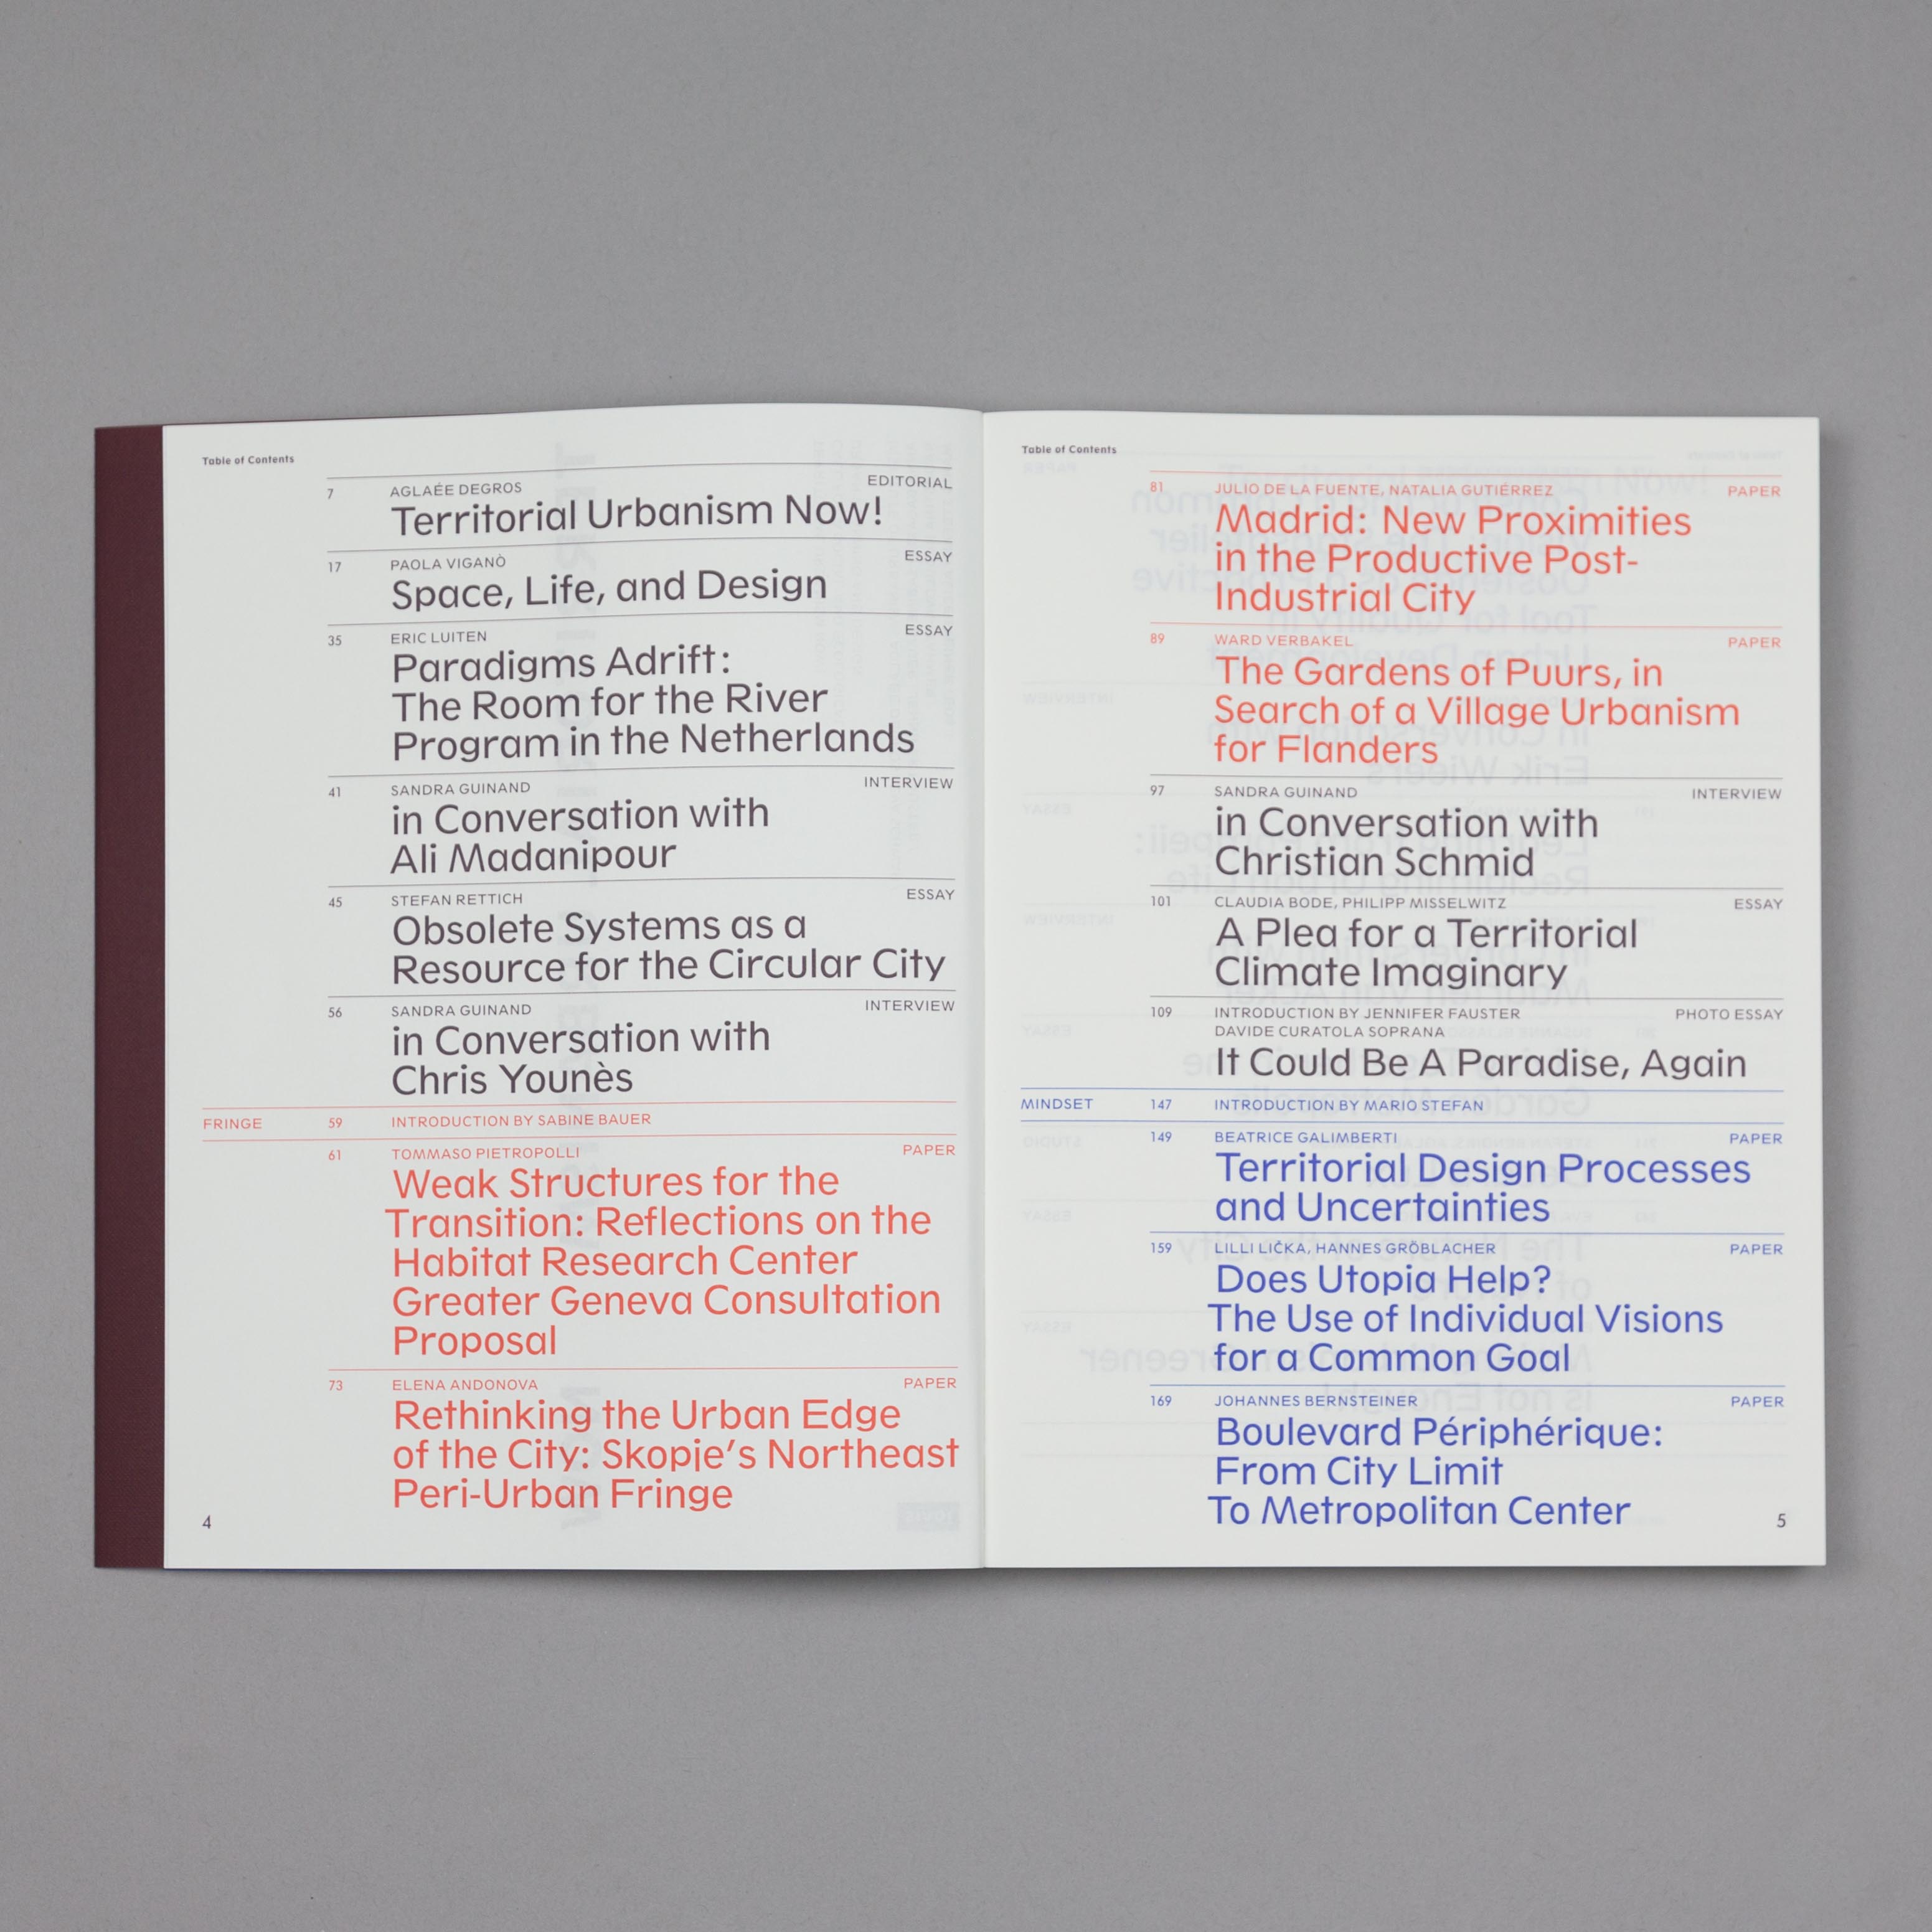 Table of Contents
7 AGLAÉE DEGROS EDITORIAL
Territorial Urbanism Now!
17 PAOLA VIGANÒ ESSAY
Space, Life, and Design
35 ERIC LUITEN ESSAY
Paradigms Adrift:
The Room for the River
Program in the Netherlands
41 SANDRA GUINAND INTERVIEW
in Conversation with
Ali Madanipour
45 STEFAN RETTICH ESSAY
Obsolete Systems as a
Resource for the Circular City
56 SANDRA GUINAND INTERVIEW
in Conversation with
Chris Younès
FRINGE 59 INTRODUCTION BY SABINE BAUER
61 TOMMASO PIETROPOLLI PAPER
Weak Structures for the
Transition: Reflections on the
Habitat Research Center
Greater Geneva Consultation
Proposal
73 ELENA ANDONOVA PAPER
Rethinking the Urban Edge
of the City: Skopje’s Northeast
Peri-Urban Fringe
4
Table of Contents
81 JULIO DE LA FUENTE, NATALIA GUTIÉRREZ PAPER
Madrid: New Proximities
in the Productive Post-
Industrial City
89 WARD VERBAKEL PAPER
The Gardens of Puurs, in
Search of a Village Urbanism
for Flanders
97 SANDRA GUINAND INTERVIEW
in Conversation with
Christian Schmid
101 CLAUDIA BODE, PHILIPP MISSELWITZ ESSAY
A Plea for a Territorial
Climate Imaginary
109 INTRODUCTION BY JENNIFER FAUSTER PHOTO ESSAY
DAVIDE CURATOLA SOPRANA
It Could Be A Paradise, Again
MINDSET 147 INTRODUCTION BY MARIO STEFAN
149 BEATRICE GALIMBERTI PAPER
Territorial Design Processes
and Uncertainties
159 LILLI LIČKA, HANNES GRÖBLACHER PAPER
Does Utopia Help?
The Use of Individual Visions
for a Common Goal
169 JOHANNES BERNSTEINER PAPER
Boulevard Périphérique:
From City Limit
To Metropolitan Center
5